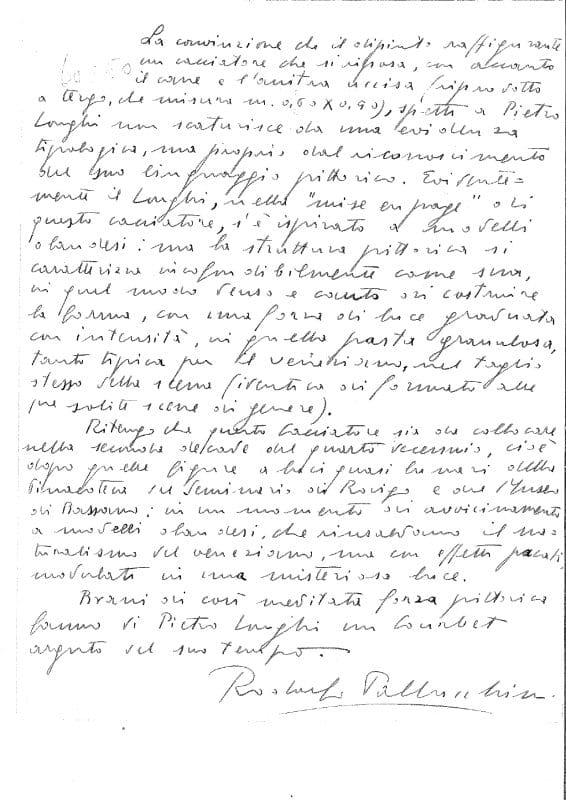 La convinzione che il dipinto raffigurante
un cacciatore che si riposa, con accanto
il cane e l'anitra uccisa (riprodotto
a tergo, che misura m. 0,60 x 0,90), spetti a Pietro
Longhi non scaturisce da una evidenza
tipologica, ma proprio dal riconoscimento
del suo linguaggio pittorico. Evidente=
mente il Longhi, nella "mise en page" di
questo cacciatore, s'è ispirato a modelli
olandesi: ma la struttura pittorica si
caratterizza inconfondibilmente come sua,
in quel modo denso e di costruire
la forma, con una forza di luce graduata
con intensità, in quella pasta granulosa,
tanto tipica per il veneziano, nel taglio
stesso della scena (identica di formato alle
sue solite scene di genere).
Ritengo che questo Cacciatore sia da collocare
nella seconda del quarto decennio, cioè
dopo quelle figure a luci quasi lunari della
Pinacoteca del Seminario di Rovigo e del Museo
di Bassano: in un momento di avvicinamento
a modelli olandesi, che rinsaldano il na=
turalismo del veneziano, ma con effetti pacati,
modulati in una misteriosa luce.
Brani di così meditata forza pittorica
fanno di Pietro Longhi un Courbet
arguto del suo tempo.
Rodolfo Pallucchini